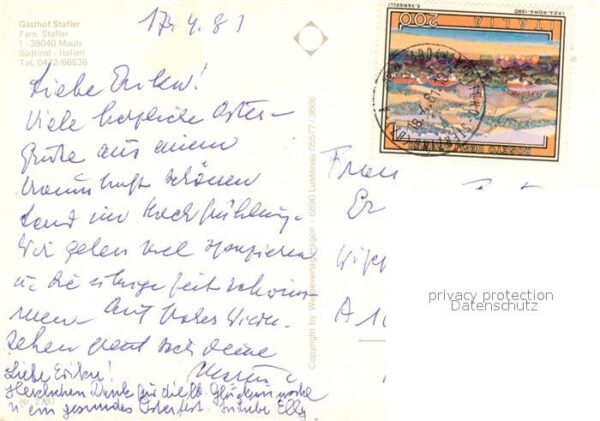 Gasthof Stafler
Fam. Stafler
I - 39040 Mauls
Südtirol - Italien
Tel. 0472/66536
17.4.81
Liebe Erika!
Viele herzliche Oster-
grüße aus einem
traumhaft schönen
Land im Hochfrühling.
Wir gehen viel spazieren
u. die übrige Zeit schwim-
men. Auf frohes Wieder-
sehen freut sich deine
Liebe Erika!
Herzlichen Dank für die lb. Glückwünsche
u. ein gesundes Osterfest. In Liebe Elly
Nr. 2797
Copyright by Werbeverlag Hagen - 6890 Lustenau 05577/3666
I.P.Z.S. - ROMA - 1980
E. VANGELLI
ITALIA
200
Frau
Er
A 10
privacy protection
Datenschutz